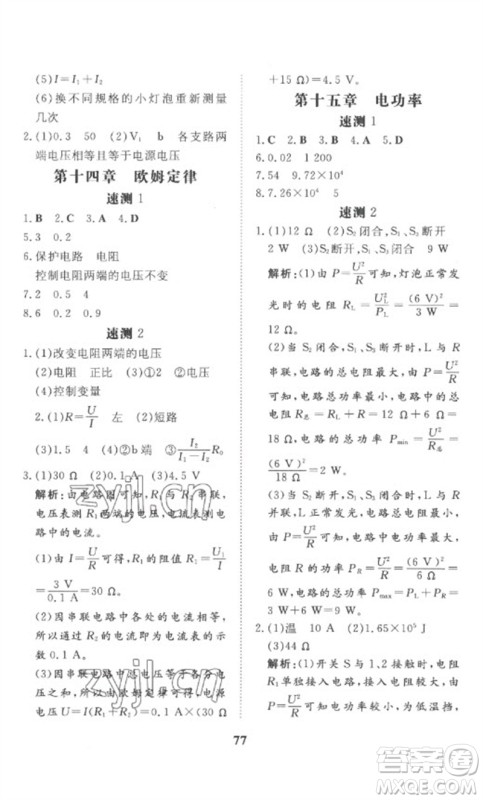 (5)I＝I₁＋I₂
(6)换不同规格的小灯泡重新测量
几次
2.(1)0.3　50　(2)V　b　各支路两
端电压相等且等于电源电压
第十四章　欧姆定律
速测 1
1.B　2.A　3.A　4.D
5.3　0.2
6.保护电路　电阻
控制电阻两端的电压不变
7.2　0.5　4
8.6　0.2　0.9
速测 2
1.(1)改变电阻两端的电压
(2)电阻　正比　(3)－12　0.5
(4)控制变量
2.(1)R＝U/I　左　(2)短路
(3)1.5　4　(4)②b　I₂/(I₁－I₂)R₀
3.(1)30 Ω　(2)0.1 A　(3)4.5 V
解析:由电路图可知,R₁与R₂串联,
电压表测R₁两端的电压,电流表测电
路中的电流。
(1)由I＝U/R可得,R₁的阻值R₁＝U₁/I
＝3 V/0.1 A＝30 Ω。
(2)因串联电路中各处的电流相等,
所以通过R₂的电流为电流表的示数
0.1 A。
(3)因串联电路中总电压等于各分
电压之和,所以,电源两端的电压
U＝U₁＋U₂＝U₁＋IR₂＝3 V＋0.1 A×
15 Ω＝4.5 V。
第十五章　电功率
速测 1
1.C　2.B　3.C　4.A　5.D
6.0.02　1 200
7.54　9.72×10⁴
8.7.26×10⁴　5
速测 2
1.(1)12 Ω　(2)S₂闭合,S₁、S₃断开
2 W　(3)S₂断开,S₁、S₃闭合　9 W
解析:(1)由P＝U²/R可知,灯泡正常发
光时的电阻R_L＝U²/P_L＝(6 V)²/3 W＝
12 Ω。
(2)当S₂闭合,S₁、S₃断开时,L与R
串联,电路的总电阻最大,由P＝U²/R
可知,电路的总功率最小,所以电路
的最小电功率P_min＝U²/R总＝
(6 V)²/18 Ω＝2 W。
L与R并联时,电路的总电阻最小,总功率最大,
光,R的电功率P_R＝U²/R＝(6 V)²/6 Ω＝
6 W,则电路的最大电功率P_max＝P_L＋P_R＝
3 W＋6 W＝9 W。
2.(1)温　10 A　(2)1.65×10⁵ J
(3)44 Ω
解析:(1)开关S与1、2接触时,电阻
77
zyjl.cn
答案圈
MXQE.COM